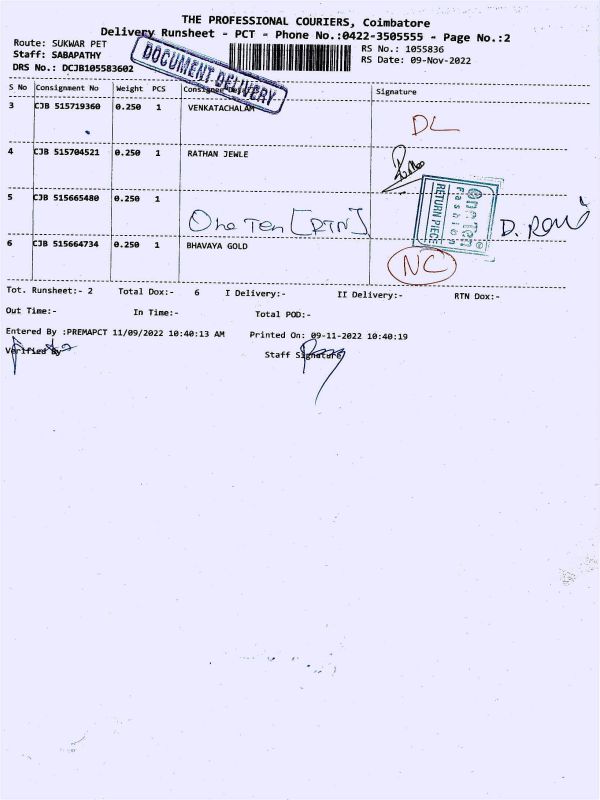 THE PROFESSIONAL COURIERS, Coimbatore
Delivery Runsheet - PCT - Phone No.:0422-3505555 - Page No.:2
Route: SUKWAR PET
RS No.: 1055836
Staff: SABAPATHY
RS Date: 09-Nov-2022
DRS No.: DCJB105583602
DOCUMENT DELIVERY
S No Consignment No Weight PCS Consignee Details Signature
3 CJB 515719360 0.250 1 VENKATACHALAM
DL
4 CJB 515704521 0.250 1 RATHAN JEWLE
5 CJB 515665480 0.250 1
One Ten [RTN]
One Ten
Fashion
RETURN PIECE
6 CJB 515664734 0.250 1 BHAVAYA GOLD
NC
Tot. Runsheet:- 2 Total Dox:- 6 I Delivery:- II Delivery:- RTN Dox:-
Out Time:- In Time:- Total POD:-
Entered By :PREMAPCT 11/09/2022 10:40:13 AM Printed On: 09-11-2022 10:40:19
Verified By Staff Signature